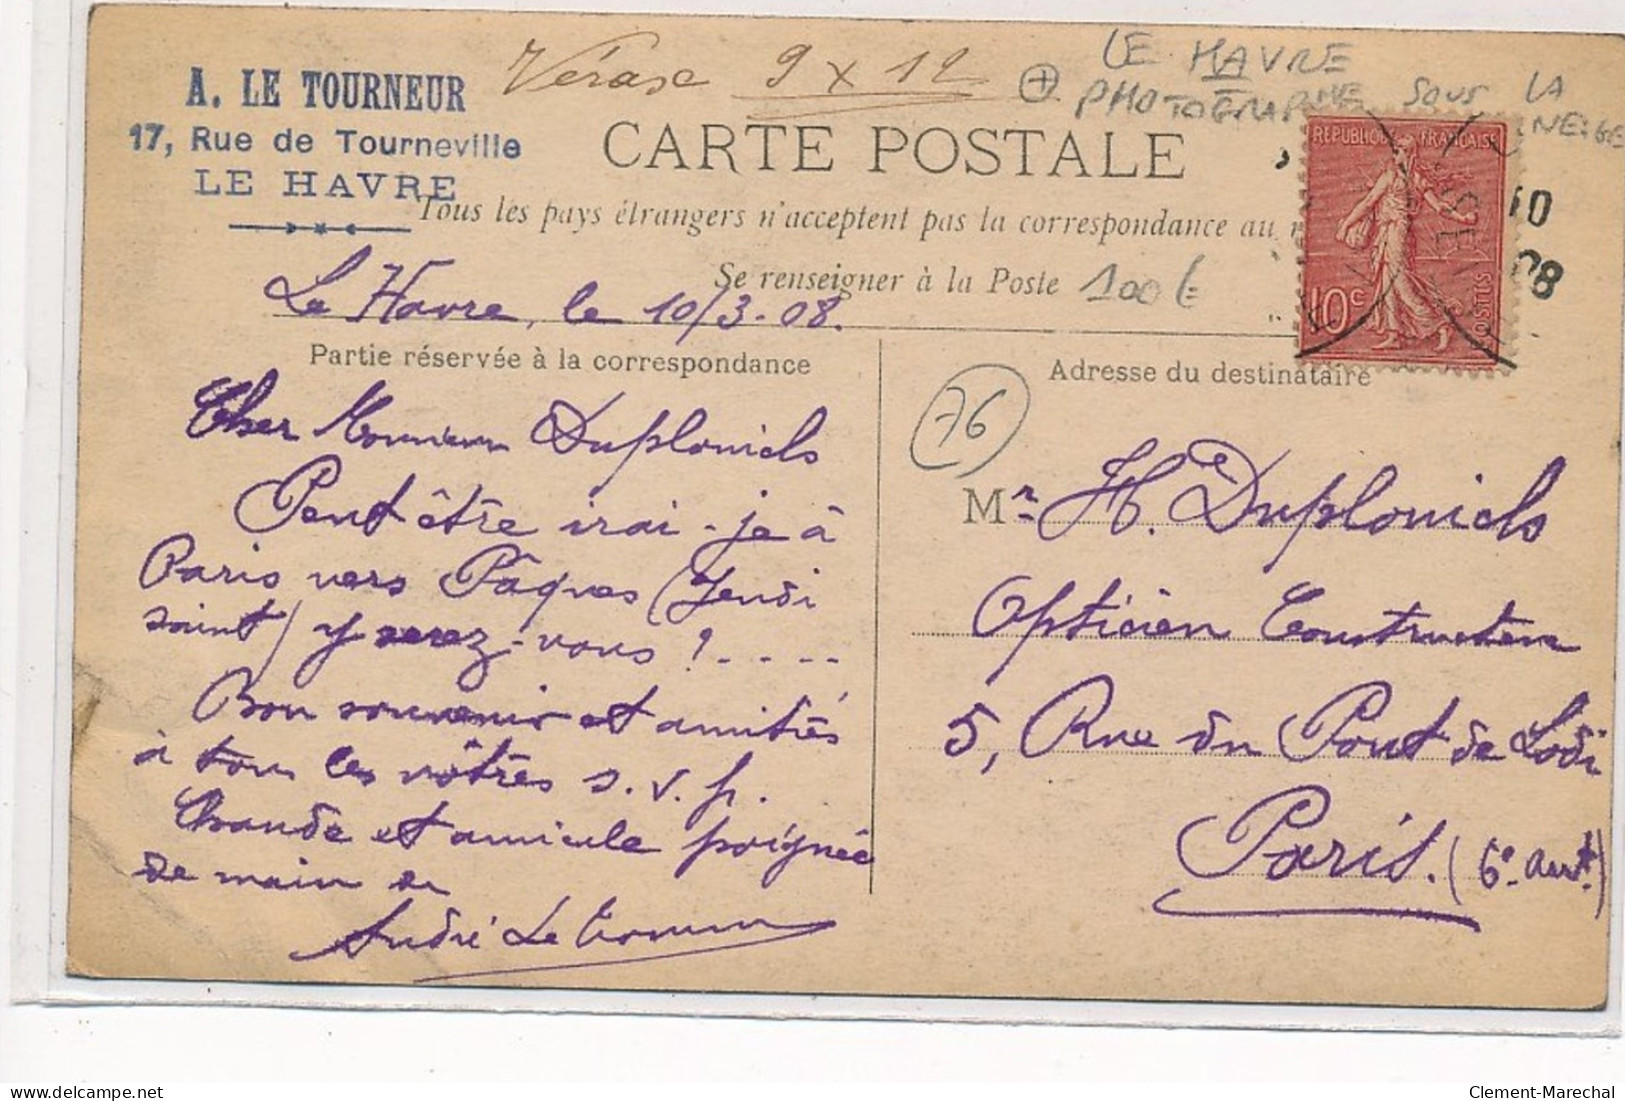 A. LE TOURNEUR
17, Rue de Tourneville
LE HAVRE
Vérasc 9 x 12
LE HAVRE
PHOTOGRAPHE SOUS LA
NEIGE
CARTE POSTALE
Tous les pays étrangers n'acceptent pas la correspondance au
Se renseigner à la Poste
100 €
REPUBLIQUE FRANÇAISE
10c
POSTES
10
08
Le Havre, le 10/3-08.
Partie réservée à la correspondance
Cher Monsieur Duplouich
Peut être irai-je à
Paris vers Pâques (Jeudi
saint) y serez-vous ? . . . .
Bon souvenir et amitiés
à tous les vôtres s.v.p.
Chaude et amicale poignée
de main de
André Le Tourneur
76
Adresse du destinataire
Mr H. Duplouich
Opticien Constructeur
5, Rue du Pont de Lodi
Paris. (6e arrt)
Clement-Marechal